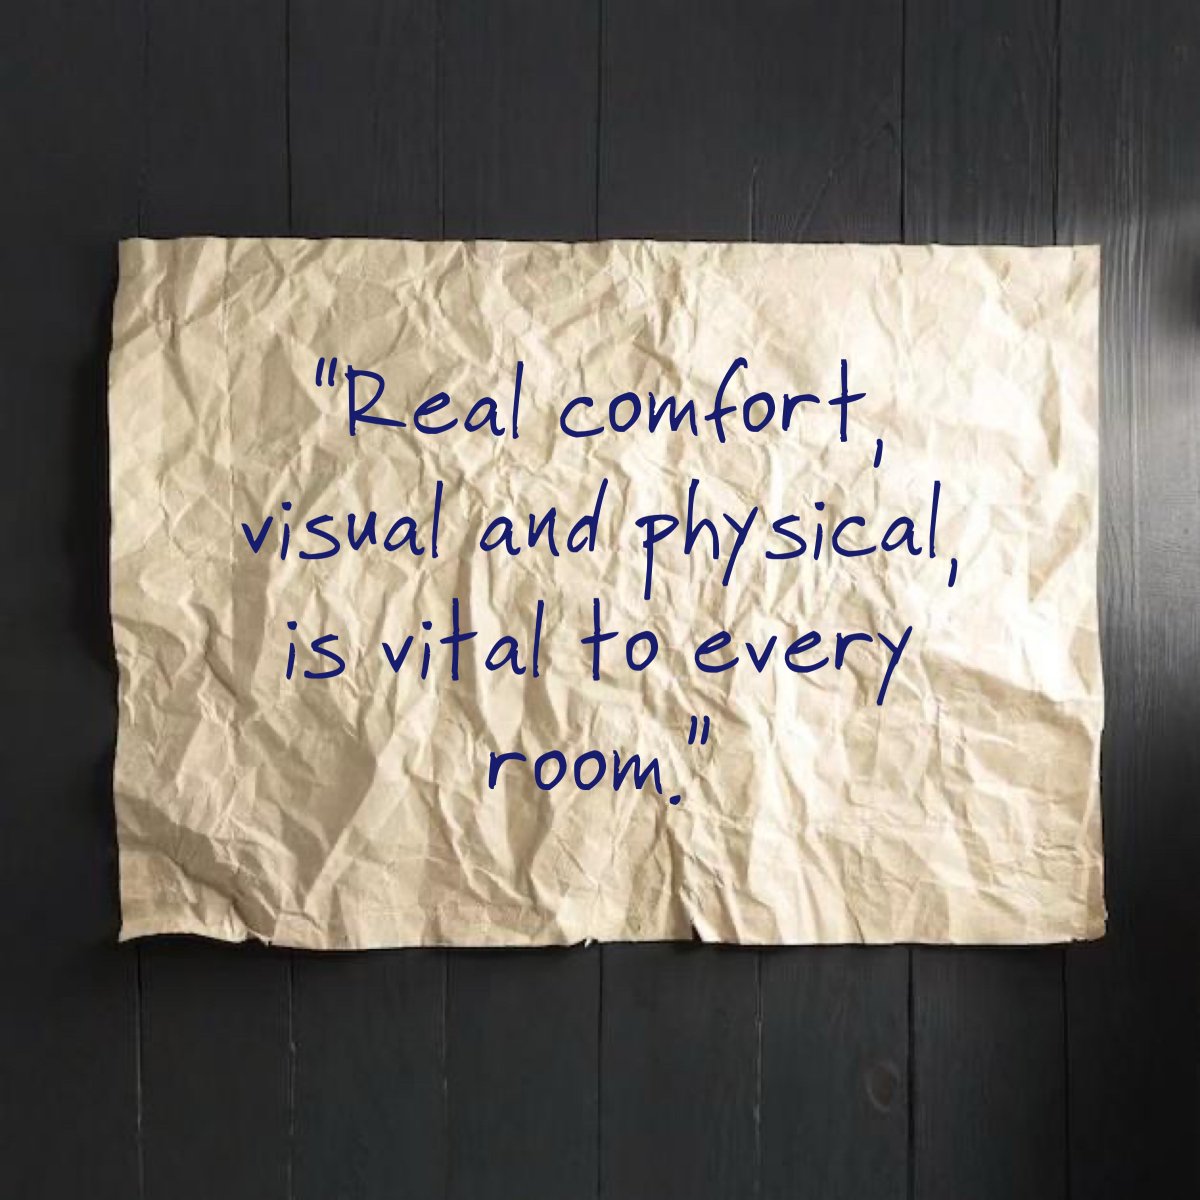 "Real comfort,
visual and physical,
is vital to every
room."